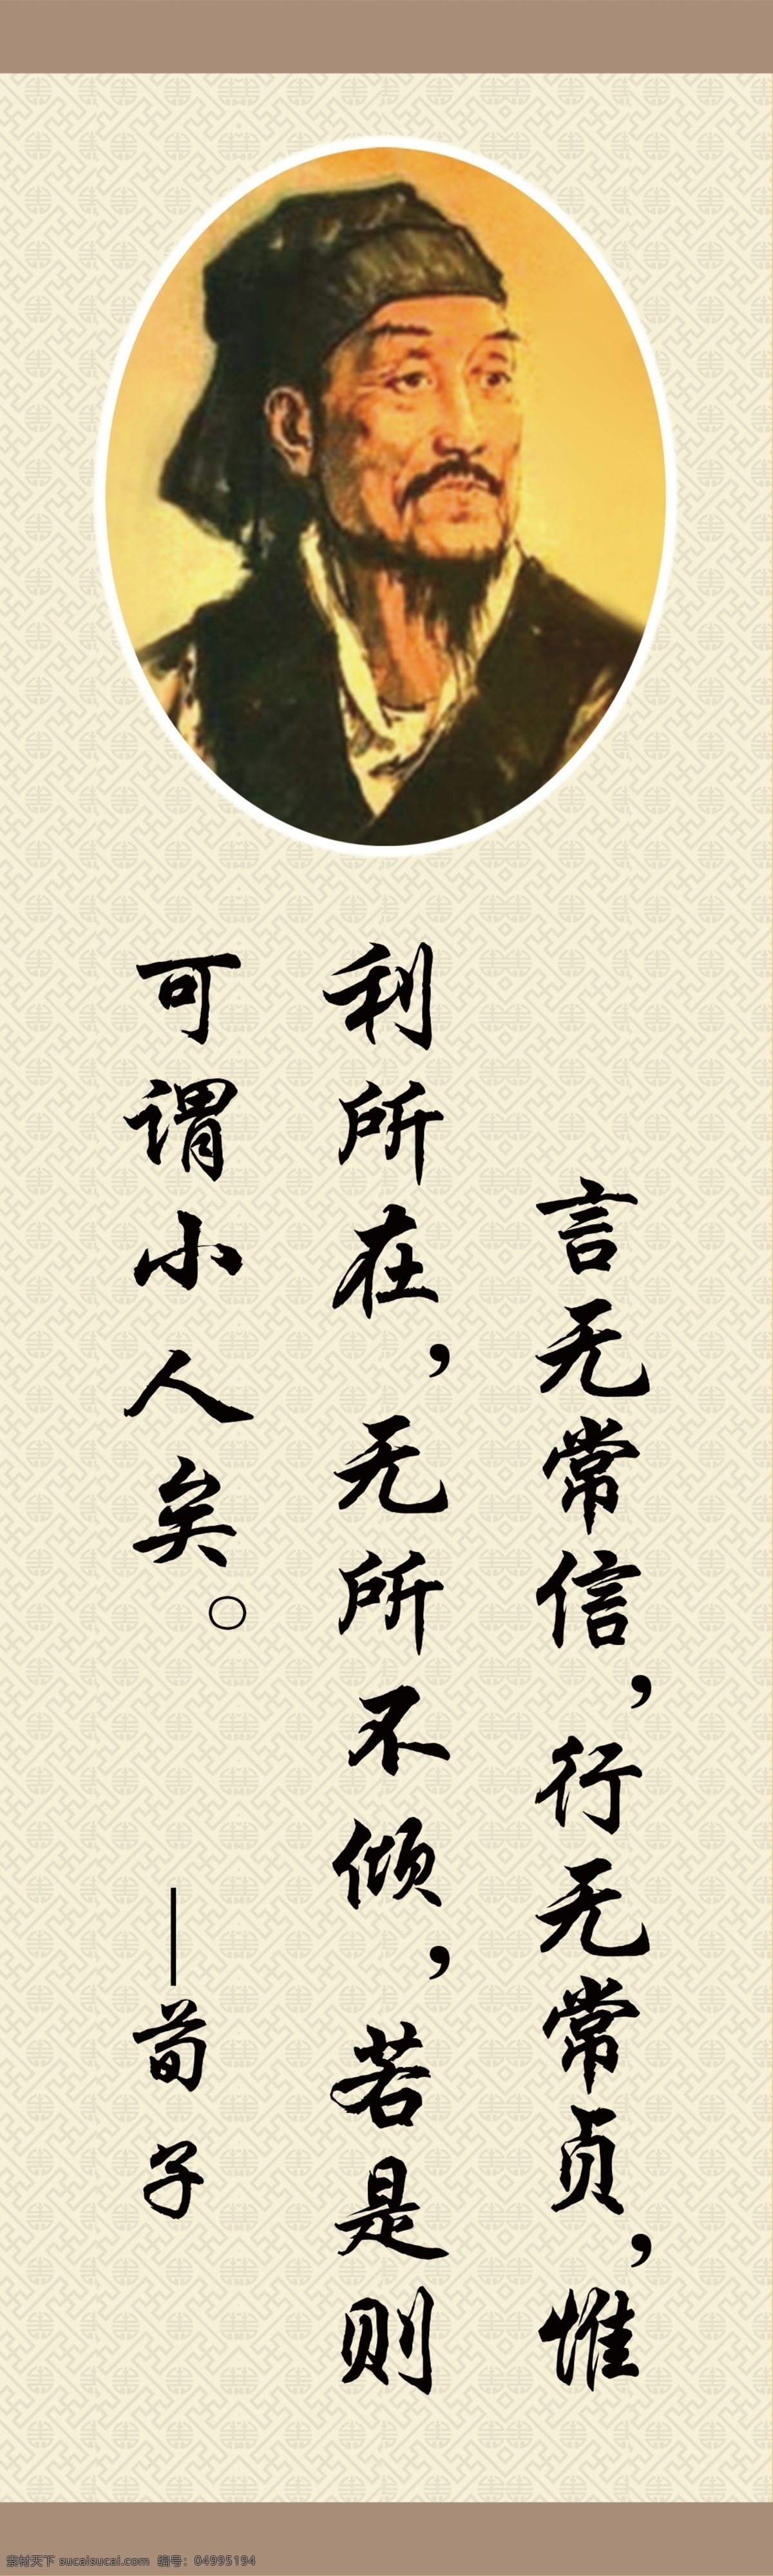 言无常信，行无常贞，惟
利所在，无所不倾，若是则
可谓小人矣。
—荀子
素材天下 sucaisucai.com 编号：04995194